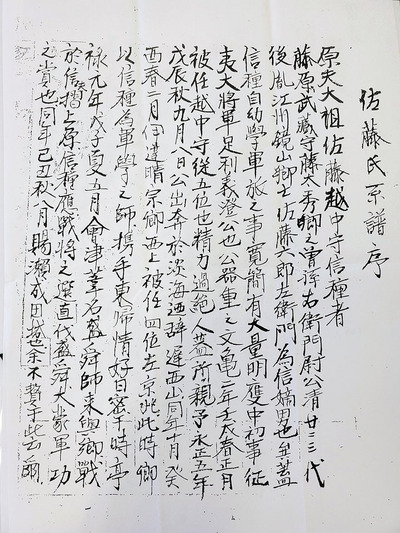 佐藤氏系譜序
原夫大祖佐藤越中守信種者
藤原武蔵守藤太秀郷之曽孫右衛門尉公清廿三代
後胤江州鏡山郷士佐藤六郎左衛門為信嫡男也並蓋
信種自幼学軍旅之事寛簡有大量明應中初事征
夷大将軍足利義澄公也公器重之文亀二年壬戌春正月
被任越中守従五位也精力過絶人蓋所親予永正五年
戊辰秋九月八日公出奔於淡海迺辞遅西山同年十月癸
酉春二月伊達晴宗卿西上被任四位左京此此時卿
以信種為軍学之師携手東帰情好日密于時享
禄元年戊子夏五月會津葦名盛舜師来與卿戦
於信摺上原信種應戦将之選直代盛舜大蒙軍功
之賞也同年己丑秋八月賜瀬成田越余不贅于此云爾